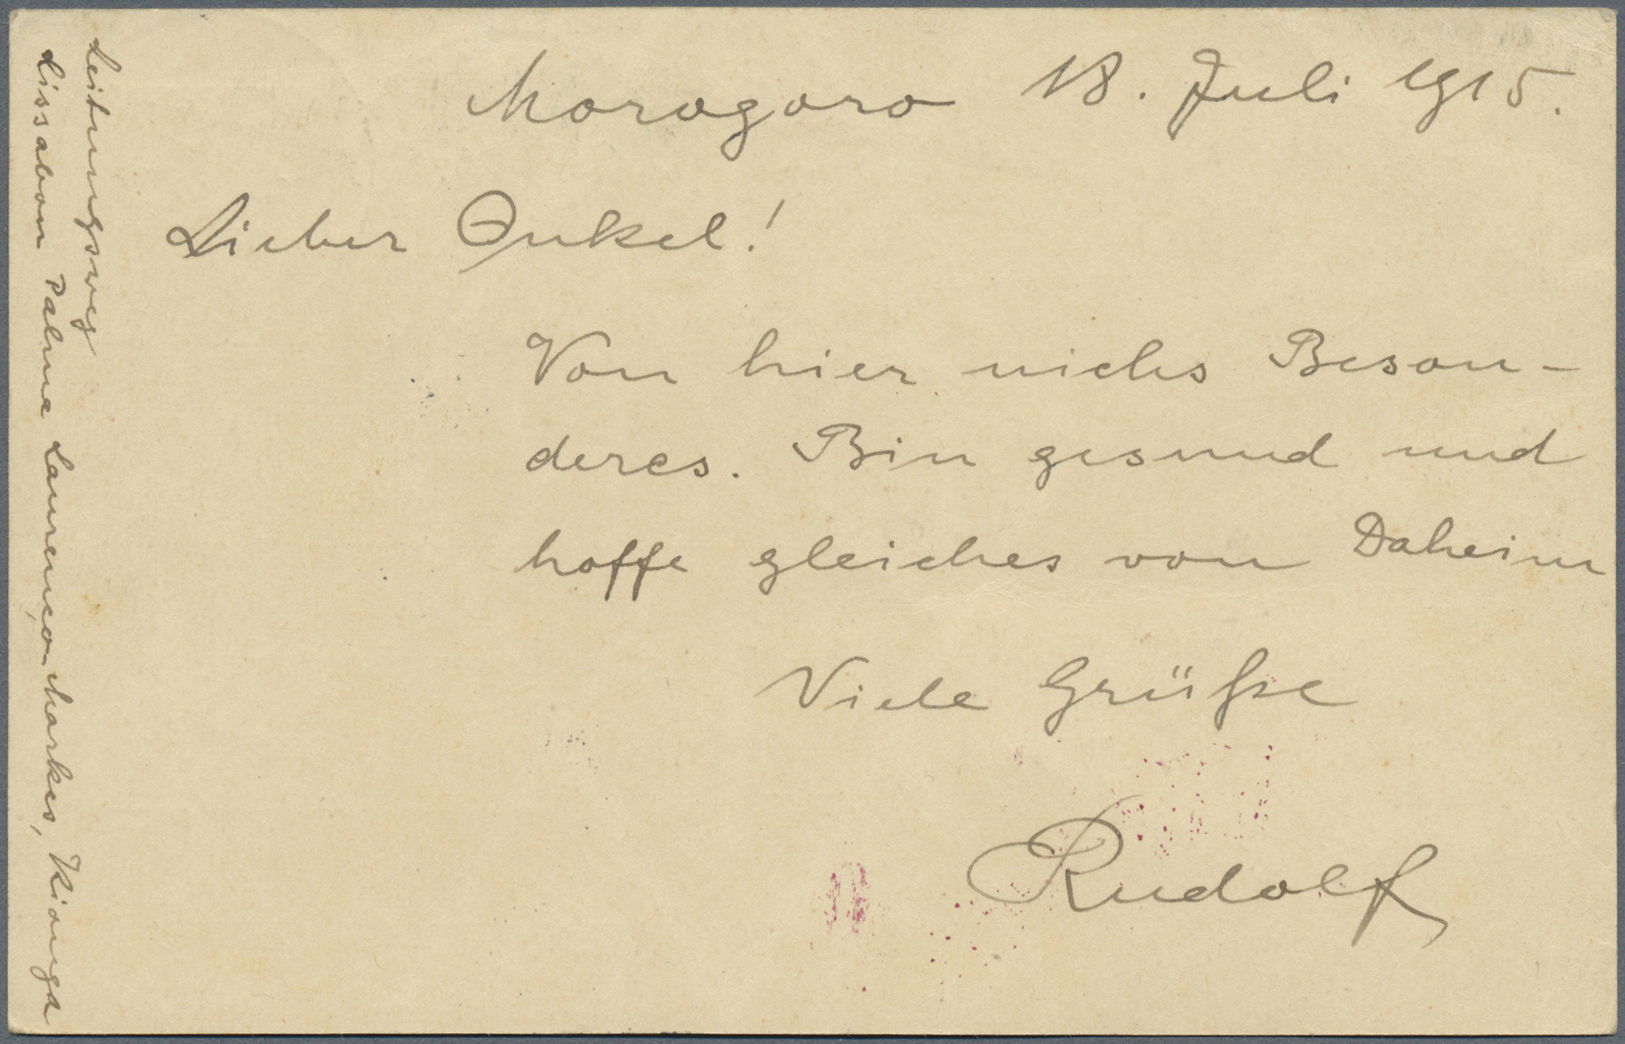 Morogoro 18. Juli 1915.
Lieber Onkel!
Von hier nichs Beson-
deres. Bin gesund und
hoffe gleiches von Daheim
Viele Grüße
Rudolf
Leitungsweg
Lissabon Palma Laurenço-Markes, Kionga